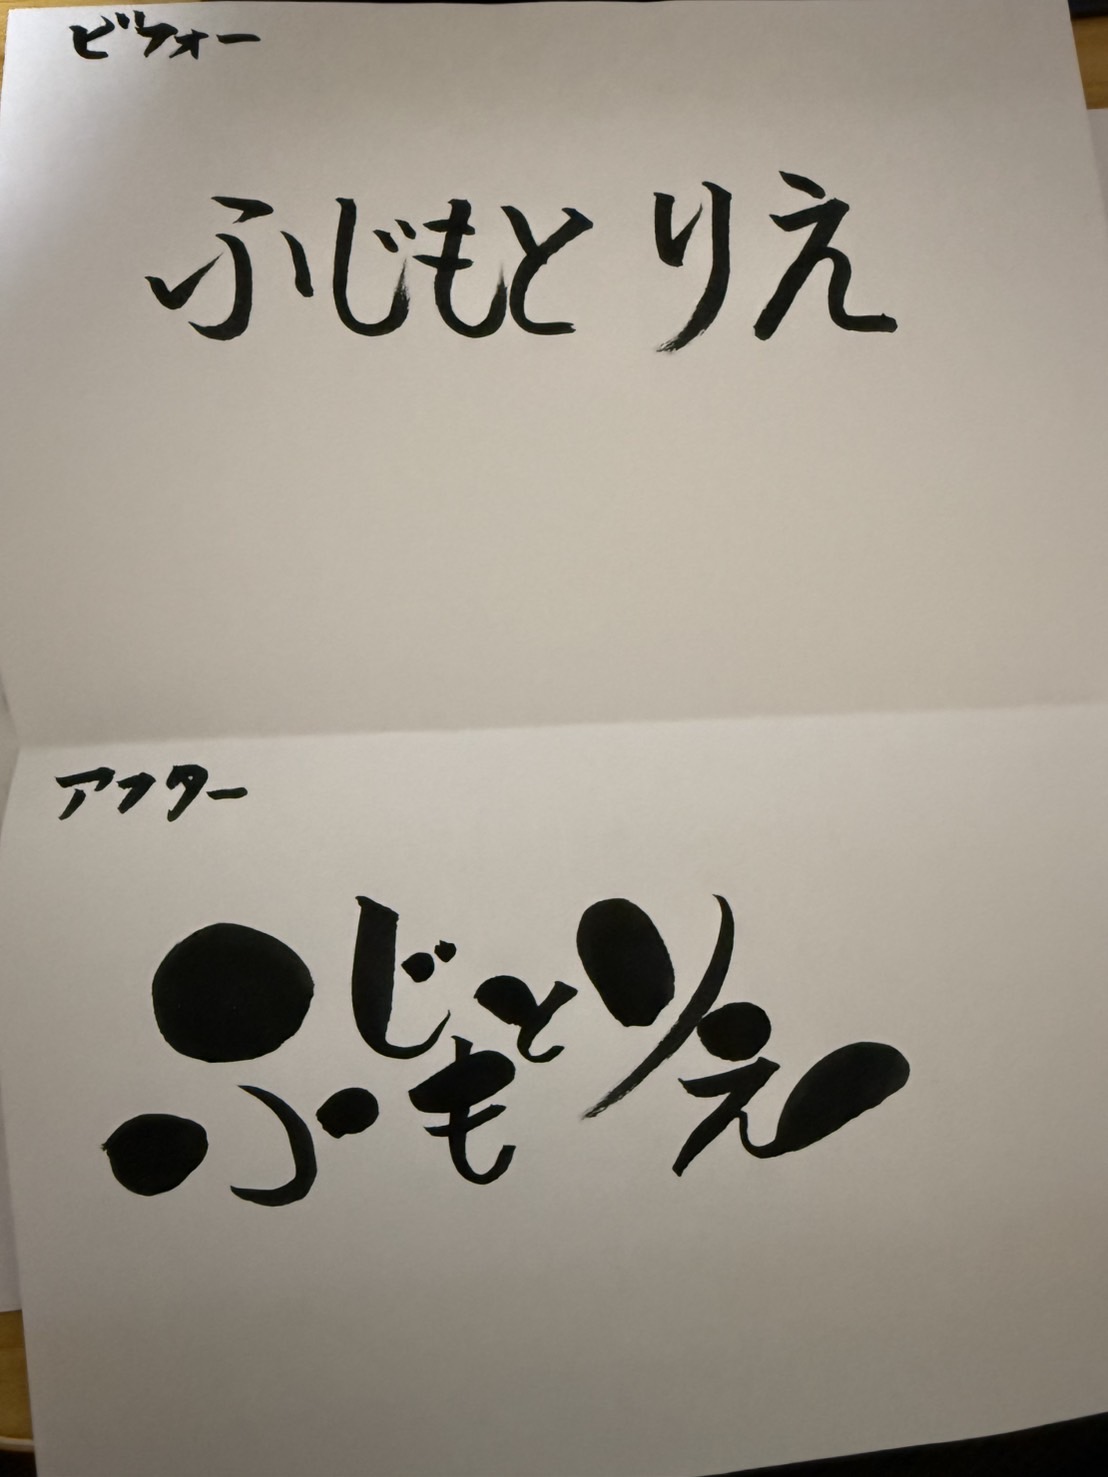 ビフォー
ふじもと りえ
アフター
ふじもとりえ